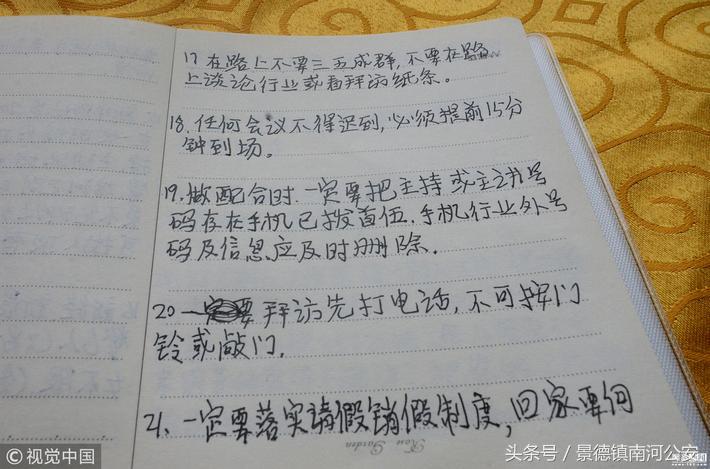 17 在路上不要三五成群，不要在路
上谈论行业或看拜访纸条。
18. 任何会议不得迟到，必须提前15分
钟到场。
19. 做配合时，一定要把主持或主讲号
码存在手机已拨首位，手机行业外号
码及信息应及时删除.
20 拜访先打电话，不可按门
铃或敲门.
21、一定要落实请假销假制度，回家要向
视觉中国
头条号 / 景德镇南河公安